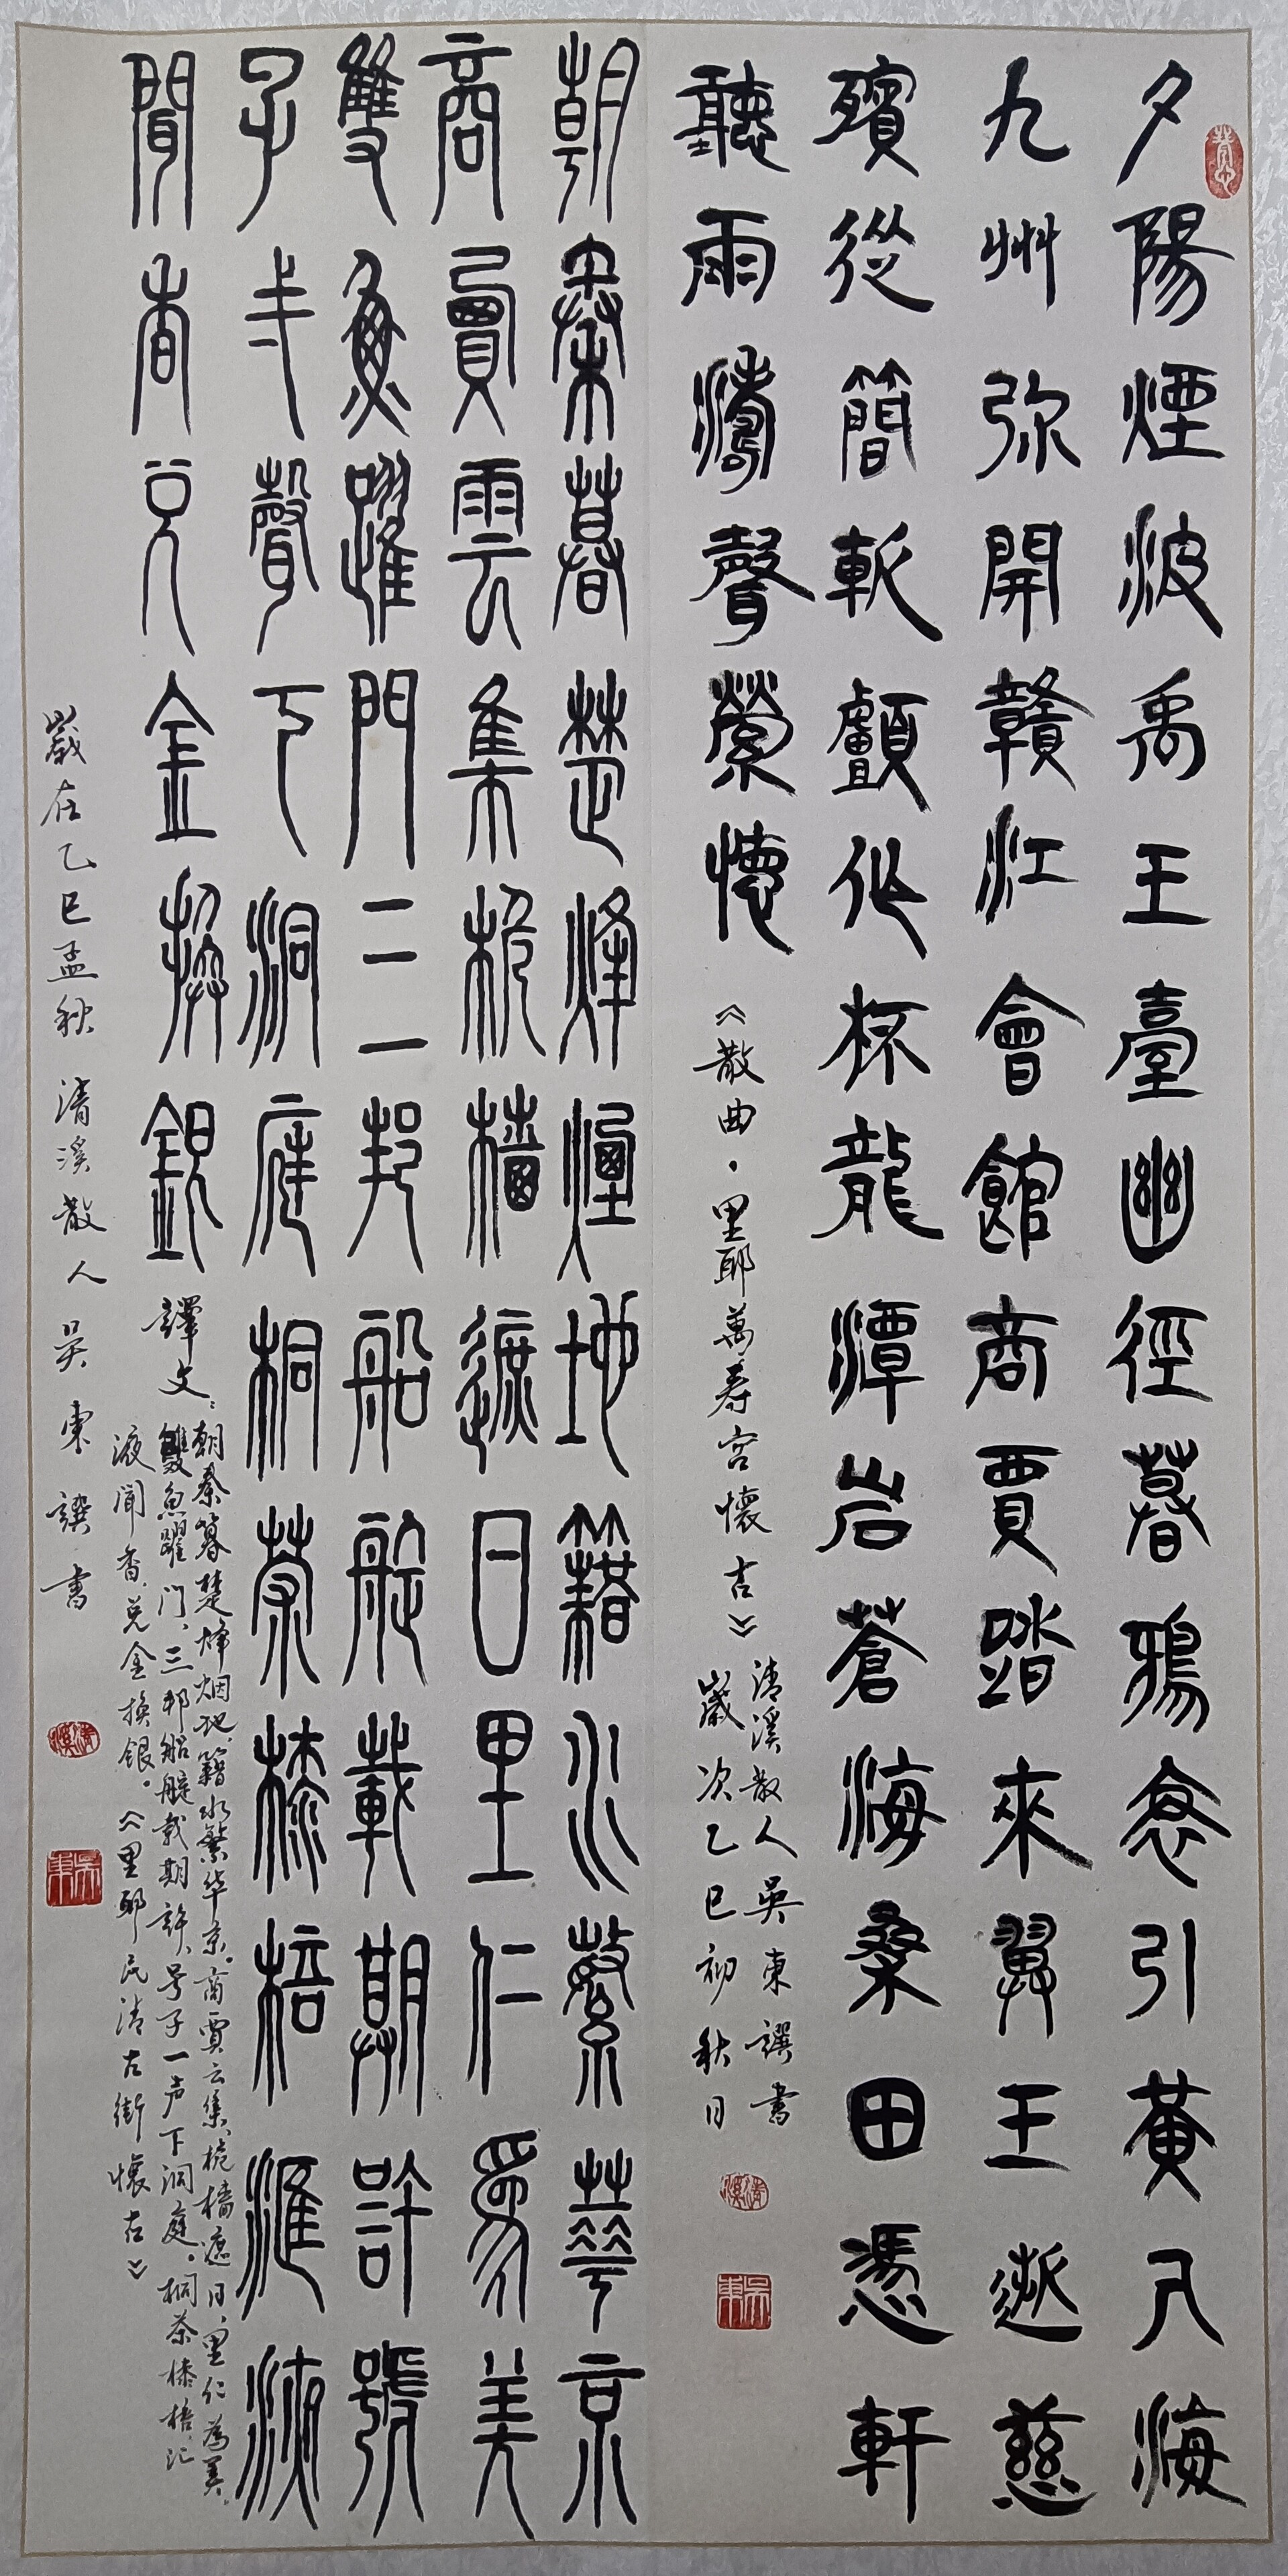 夕陽煙波禹王臺幽徑暮鴉念引黃又海
九州弥開贛江會館商賈踏來翼王逝慈
殯從簡斬顱作杯龍潭岩蒼海桑田憑軒
聽雨濤聲縈懷
《散曲·里耶萬壽宮懷古》
清溪散人吳東譔書
歲次乙巳初秋日
朝秦暮楚烽煙地籍水繁華京
商賈雲集桅檣遮日里仁為美
雙魚躍門三邦船艇載期許號
子一聲下洞庭桐茶榛梧滙液
聞香兑金換銀
譯文：
朝秦暮楚烽烟地，籍水繁华京。商賈云集，桅檣遮日，里仁為美，
雙魚躍门、三邦船艇载期許、号子一声下洞庭。桐茶榛梧汇
液聞香，兑金换銀。《里耶民清古街懷古》
歲在乙巳孟秋 清溪散人吴東譔書
清溪
吳東
清溪
吳東